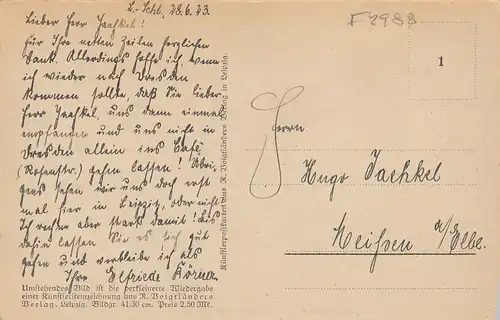 L.-Schb, 28.6.23.
Lieber Herr Jaehkel!
Für Ihre netten Zeilen herzlichen
Dank. Allerdings hoffe ich, wenn
ich wieder nach Dresden
kommen sollte, daß Sie lieber
Herr Jaehkel, uns dann einmal
empfangen und uns nicht in
Dresden allein ins Café
(Rosenstr.) gehen lassen! Übri-
gens sehen wir uns doch erst
mal hier in Leipzig, oder nicht?
Ich rechne aber stark damit! Bis
dahin lassen Sie es sich gut
gehen und verbleibe ich als
Ihre Elfriede Körner
Umstehendes Bild ist die verkleinerte Wiedergabe
einer Künstlersteinzeichnung aus R. Voigtländers
Verlag. Leipzig. Bildgr. 41/30 cm. Preis 2.50 Mk.
Künstlerpostkarten aus R. Voigtländers Verlag in Leipzig.
F2988
1
Herrn
Hugo Jaehkel
Meißen a/Elbe.